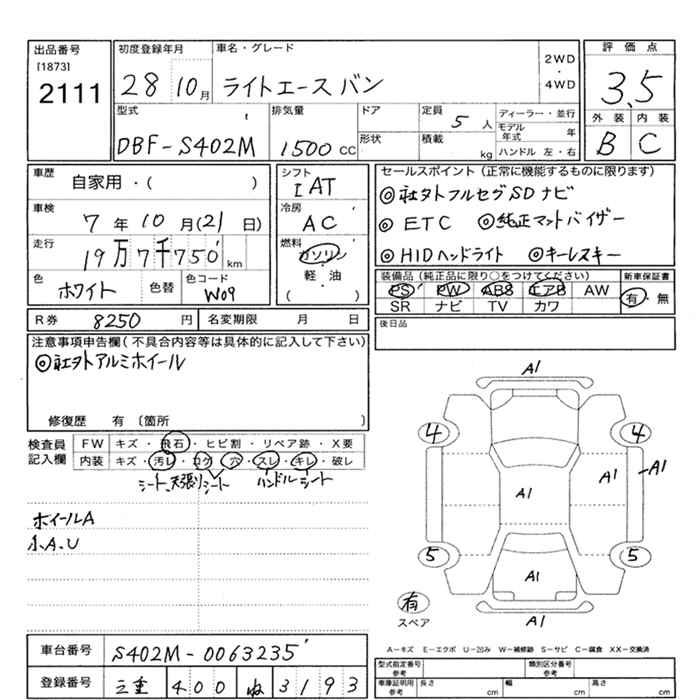 出品番号 初度登録年月 車名・グレード 2WD・4WD 評価点
[1873]
2111 28 10月 ライトエース バン 3.5
型式 排気量 ドア 定員 5人 ディーラー・並行 外装 内装
DBF-S402M 1500 CC 形状 積載 kg モデル年式 年 B C
ハンドル 左・右
車歴 自家用・( ) シフト IAT セールスポイント(正常に機能するものに限ります)
◎社外フルセグSDナビ
車検 7年10月(21日) 冷房 AC ◎ETC ◎純正マットバイザー
走行 19万7千750 km 燃料 ガソリン ◎HIDヘッドライト ◎キーレスキー
軽・油
( )
色 ホワイト 色替 色コード W09 装備品(純正品に限り○をつけてください) 新車保証書
PS PW ABS エアB AW 有・無
SR ナビ TV カワ
R券 8250円 名変期限 月 日 後日品
注意事項申告欄(不具合内容等は具体的に記入して下さい)
◎社外アルミホイール
修復歴 有 〔箇所 〕
検査員記入欄 FW キズ・飛石・ヒビ割・リペア跡・X要
内装 キズ・汚レ・コゲ・穴・スレ・キレ・破レ
シート、天張り シート ハンドル シート
ホイールA
小.A.U
A1
4 4
A1 A1 A1
5 5
A1
A1
有
スペア
A-キズ E-エクボ U-凹み W-補修跡 S-サビ C-腐食 XX-交換済
車台番号 S402M-0063235
型式指定番号 参考 類別区分番号 参考
登録番号 三重 400 ぬ 3193
車庫証明用 参考 長さ cm 幅 cm 高さ cm